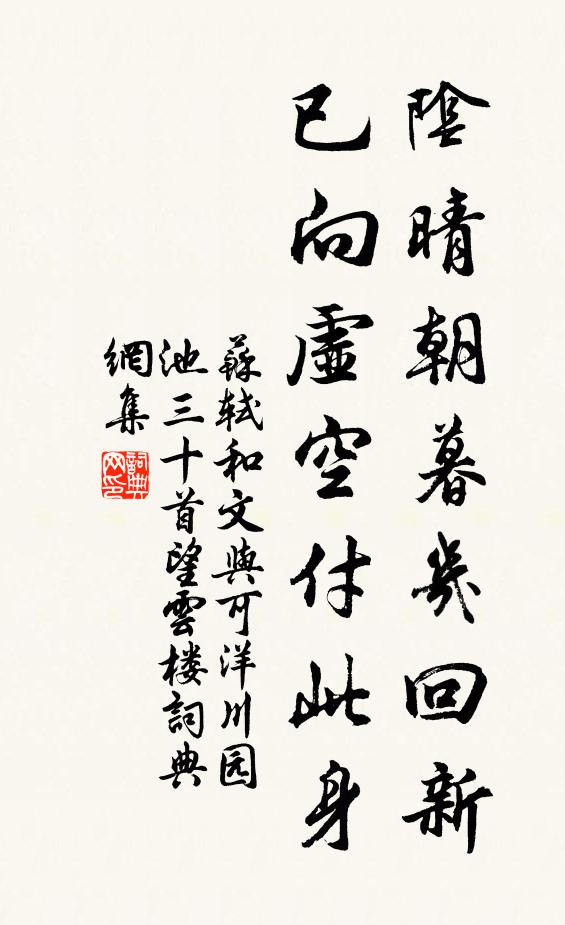 陰晴朝暮幾回新
已向虛空付此身
蘇軾和文與可洋川园
池三十首望雲楼詞典
網集
詞典網印